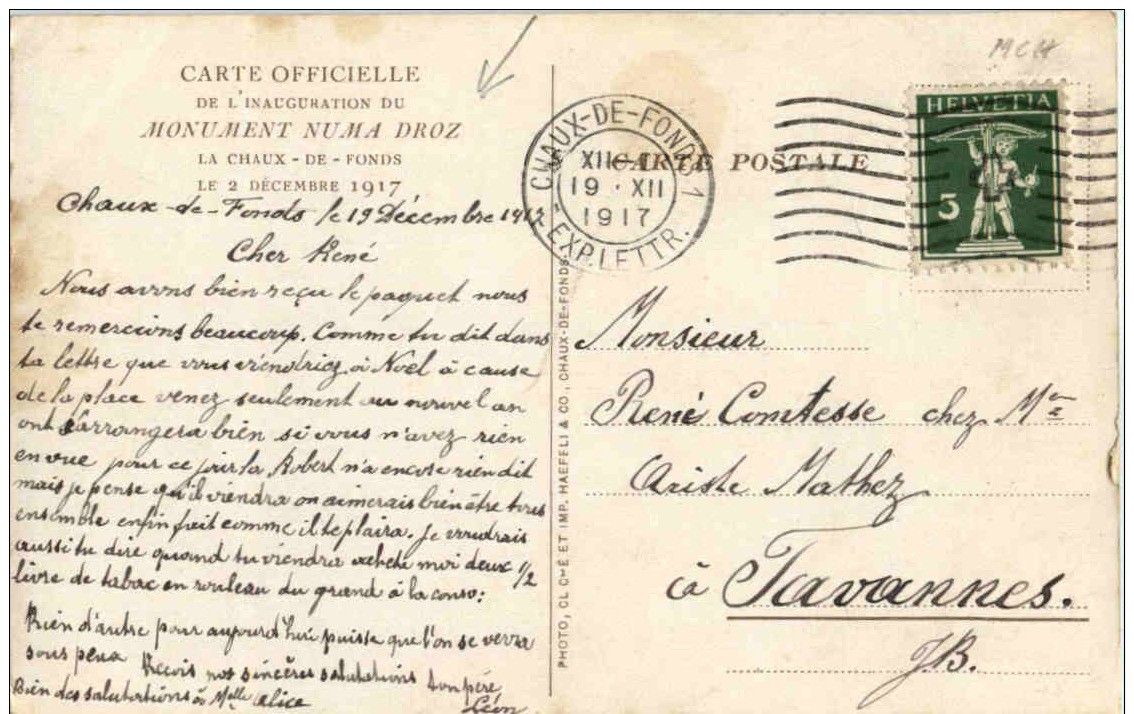 CARTE OFFICIELLE
DE L'INAUGURATION DU
MONUMENT NUMA DROZ
LA CHAUX-DE-FONDS
LE 2 DÉCEMBRE 1917
Chaux-de-Fonds le 19 Décembre 1917
Cher René
Nous avons bien reçu le paquet nous
te remercions beaucoup. Comme tu dit dans
ta lettre que vous viendriez à Noël à cause
de la place venez seulement au nouvel an
ont s'arrangera bien si vous n'avez rien
en vue pour ce jour la Robert n'a encore rien dit
mais je pense qu'il viendra on aimerais bien être tous
ensemble enfin fait comme il te plaira. Je voudrais
aussi tu dire quand tu viendra achète moi deux 1/2
livre de tabac en rouleau du grand à la conso:
Rien d'autre pour aujourd'hui puisse que l'on se verra
sous peux Reçois nos sincères salutations ton père
Bien des salutations à Melle Alice Léon
PHOTO, CLICHÉ ET IMP. HAEFELI & CO., CHAUX-DE-FONDS.
MCH
CARTE POSTALE
CHAUX-DE-FONDS 1
XII-1
19·XII
1917
EXP. LETTR.
HELVETIA
5
Monsieur
René Comtesse chez Mr
Ariste Mathez
à Tavannes.
J.B.